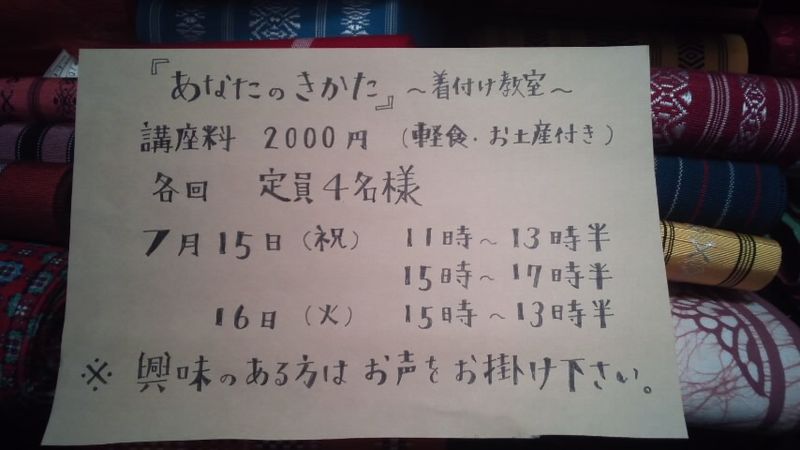 『あなたのきかた』～着付け教室～
講座料 2000円 (軽食・お土産付き)
各回 定員4名様
7月15日(祝) 11時～13時半
15時～17時半
16日(火) 15時～13時半
※ 興味のある方はお声をお掛け下さい。